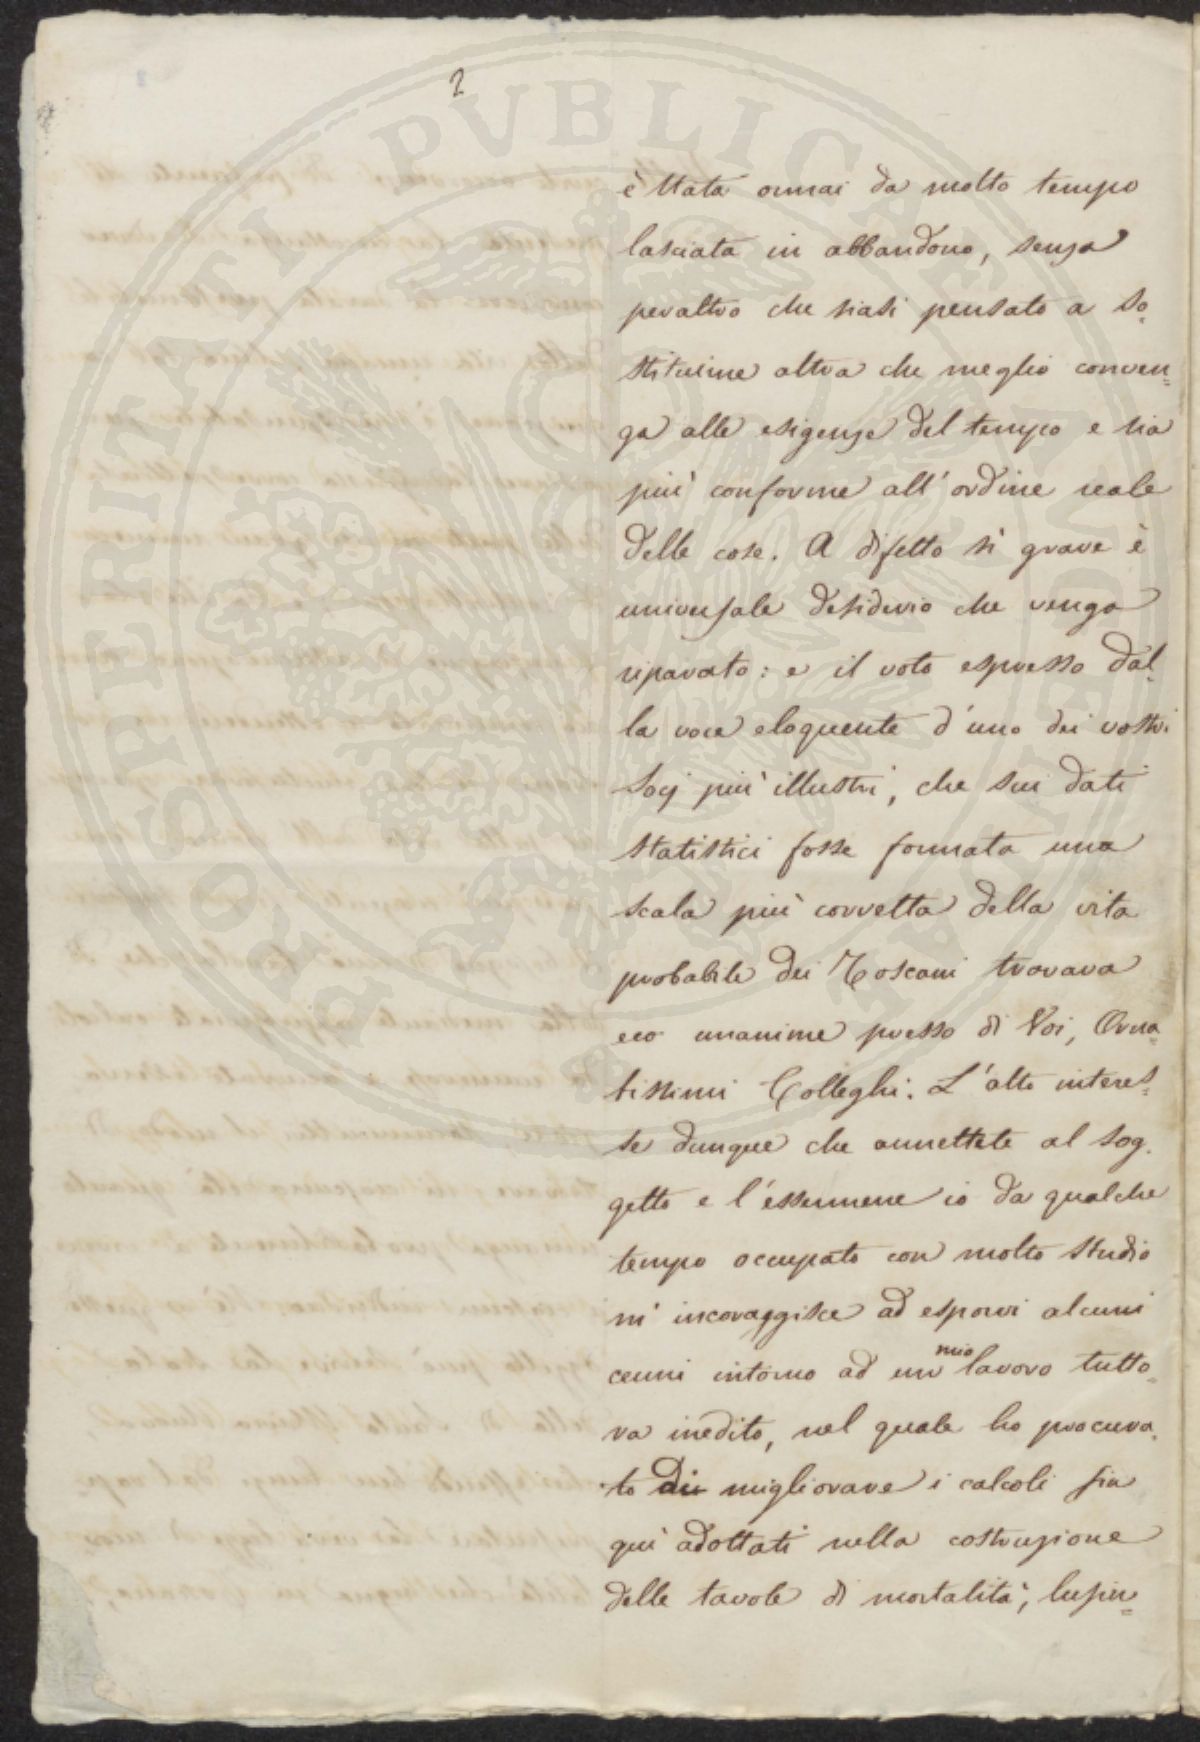 2
è stata ormai da molto tempo
lasciata in abbandono, senza
peraltro che siasi pensato a so-
stituirne altra che meglio conven=
ga alle esigenze del tempo e sia
più conforme all'ordine reale
delle cose. A difetto sì grave è
universale desiderio che venga
riparato: e il voto espresso dal-
la voce eloquente d'uno dei vostri
Socj più illustri, che sui dati
statistici fosse formata una
scala più corretta della vita
probabile dei Toscani trovava
eco unanime presso di Voi, Orna-
tissimi Colleghi. L'alto interes=
se dunque che annettete al sog-
getto e l'essermene io da qualche
tempo occupato con molto studio
m'incoraggisce ad esporvi alcuni
cenni intorno ad un mio lavoro tutto-
ra inedito, nel quale ho procura-
to di migliorare i calcoli fin
quì adottati nella costruzione
delle tavole di mortalità, lusin=
PROSPERITATI PVBLICAE AVGENDAE